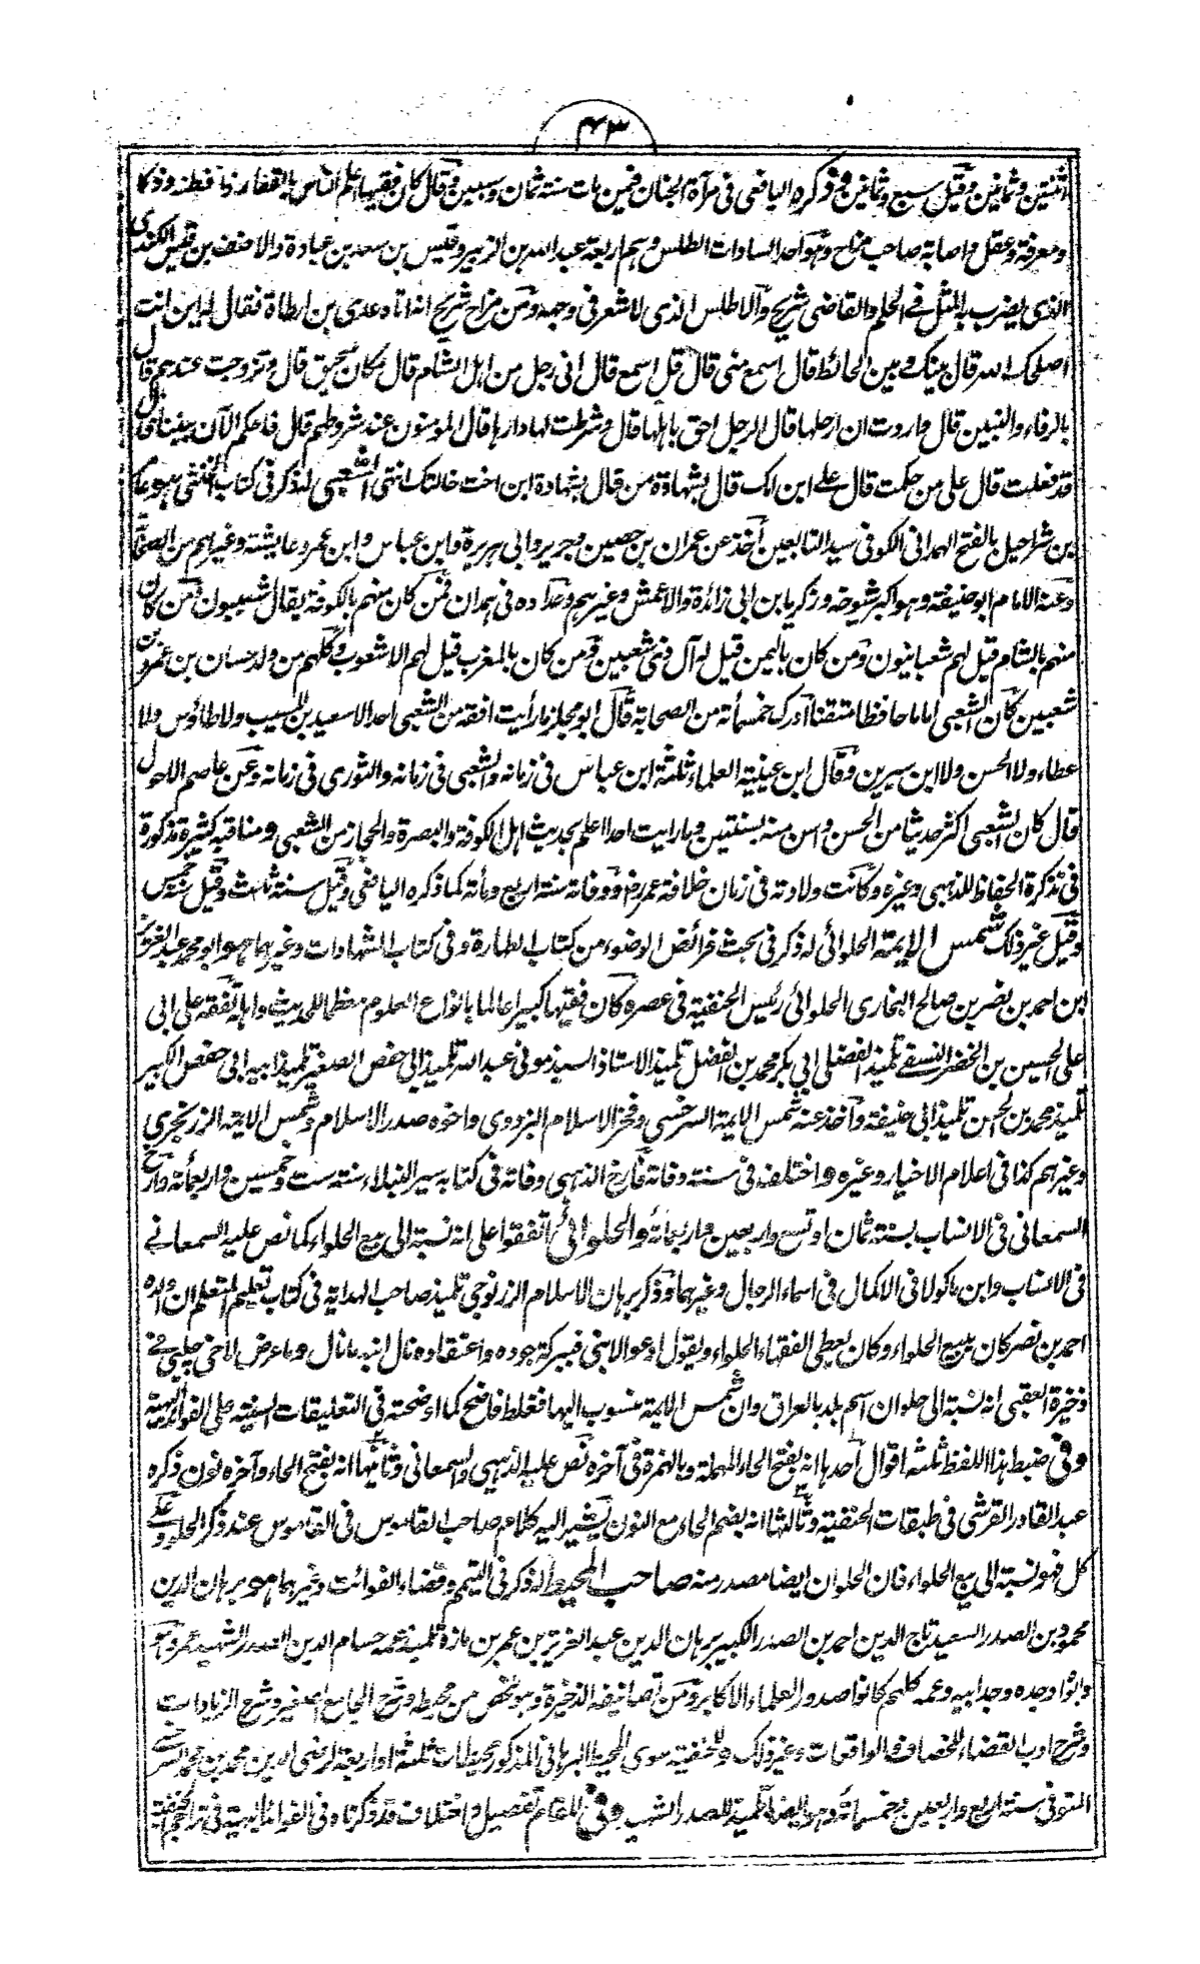 ۴۳
اثنتين وثمانين وقيل سبع وثمانين وذكره اليافعى فى مرآة الجنان فيمن مات سنة ثمان وسبعين وقال كان فقيها اعلم الناس بالقضاء ذا فطنة وذكا
ومعرفة وعقل واصابة صاحب مزاح وهو احد السادات الطلس وهم اربعة عبد الله بن الزبير وقيس بن سعد بن عبادة والاحنف بن قيس الكندى
الذى يضرب به المثل فى الحلم والقاضى شريح والاطلس الذى لا شعر فى وجهه ومن مزاح شريح انه اتاه عدى بن ارطاة فقال له اين انت
اصلحك الله قال بينك وبين الحائط قال اسمع منى قال قل اسمع قال انى رجل من اهل الشام قال مكان سحيق قال وتزوجت عندهم قال
بالرفاء والبنين قال واردت ان ارحلها قال الرجل احق باهلها قال وشرطت لها دارها قال المؤمنون عند شروطهم قال فاحكم الآن بيننا قال
قد فعلت قال على من حكمت قال على ابن امك قال بشهادة من قال بشهادة ابن اخت خالتك انتهى الشعبى له ذكر فى كتاب الخنثى هو عا
بن شراحيل بالفتح الهمدانى الكوفى سيد التابعين أخذ عن عمران بن حصين وجرير وابى هريرة وابن عباس وابن عمر وعايشة وغيرهم من الصحا
وعنه الامام ابو حنيفة وهو اكبر شيوخه وزكريا بن ابى زائدة والاعمش وغيرهم وعداده فى همدان فمن كان منهم بالكوفة يقال شعبيون ومن كان
منهم بالشام قيل لهم شعبانيون ومن كان باليمن قيل له آل ذى شعبين ومن كان بالمغرب قيل لهم الاشعوب وكلهم من ولد حسان بن عمرو بن
شعبين كان الشعبى اماما حافظا متقنا ادرك خمسمأة من الصحابة قال ابو مجلز ما رأيت افقه من الشعبى احدا لا سعيد بن المسيب ولا طاؤس ولا
عطاء ولا الحسن ولا ابن سيرين وقال ابن عيينة العلماء ثلثة ابن عباس فى زمانه والشعبى فى زمانه والثورى فى زمانه وعن عاصم الاحول
قال كان الشعبى اكثر حديثا من الحسن واسن منه بسنتين وما رايت احدا اعلم بحديث اهل الكوفة والبصرة والحجاز من الشعبى ومناقبه كثيرة مذكورة
فى تذكرة الحفاظ للذهبى وغيره وكانت ولادته فى زمان خلافة عمر رض ووفاته سنة اربع ومأة كما ذكره اليافعى وقيل سنة ثلث وقيل سنة خمس
وقيل غير ذلك شمس الايمة الحلوائى له ذكر فى بحث فرائض الوضوء من كتاب الطهارة وفى كتاب الشهادات وغيرهما هو ابو محمد عبد العزيز
ابن احمد بن نصر بن صالح البخارى الحلوائى رئيس الحنفية فى عصره كان فقيها كبيرا عالما بانواع العلوم معظما للحديث واهله تفقه على ابى
على الحسين بن الخضر النسفى تلميذ الفضلى ابى بكر محمد بن الفضل تلميذ الاستاذ السبذمونى عبد الله تلميذ ابى حفص الصغير تلميذ ابيه ابى حفص الكبير
تلميذ محمد بن الحسن تلميذ ابى حنيفة وأخذ عنه شمس الايمة السرخسى وفخر الاسلام البزدوى واخوه صدر الاسلام وشمس الايمة الزرنجرى
وغيرهم كذا فى اعلام الاخيار وغيره واختلف فى سنة وفاته فأرخ الذهبى وفاته فى كتابه سير النبلاء سنة ست وخمسين واربعمأة وارخ
السمعانى فى الانساب بسنة ثمان او تسع واربعين واربعمأة والحلوائى اتفقوا على انه نسبة الى بيع الحلواء كما نص عليه السمعانى
فى الانساب وابن ماكولا فى الاكمال فى اسماء الرجال وغيرهما وذكر برهان الاسلام الزرنوجى تلميذ صاحب الهداية فى كتاب تعليم المتعلم ان والده
احمد بن نصر كان يبيع الحلواء وكان يعطى الفقهاء الحلواء ويقول ادعوا لابنى فببركة جوده واعتقاده نال ابنه ما نال وما عرض لاخى چلپى فى
ذخيرة العقبى انه نسبة الى حلوان اسم بلد بالعراق وان شمس الايمة منسوب اليها فغلط فاضح كما اوضحته فى التعليقات السنية على الفوائد البهية
وفى ضبط هذا اللفظ ثلثة اقوال احدها انه بفتح الحاء المهملة وبالهمزة فى آخره نص عليه الذهبى والسمعانى وثانيها انه بفتح الحاء وآخره نون ذكره
عبد القادر القرشى فى طبقات الحنفية وثالثها انه بضم الحاء مع النون يشير اليه كلام صاحب القاموس فى القاموس عند ذكر الحلو وعلى
كل فهو نسبة الى بيع الحلواء فان الحلوان ايضا مصدر منه صاحب المحيط له ذكر فى التيمم وقضاء الفوائت وغيرهما هو برهان الدين
محمود بن الصدر السعيد تاج الدين احمد بن الصدر الكبير برهان الدين عبد العزيز بن عمر بن مازة تلميذ عمه حسام الدين الصدر الشهيد عمر وهو
وابوا وجده وجد ابيه وعمه كلهم كانوا صدور العلماء الاكابر ومن تصانيفه الذخيرة وهو ملخص من محيطه وشرح الجامع الصغير وشرح الزيادات
وشرح ادب القضاء للخصاف والواقعات وغير ذلك وللحنفية سوى المحيط البرهانى المذكور محيطات ثلثة او اربعة لرضى الدين محمد بن محمد السرخسى
المتوفى سنة اربع واربعين وخمسمأة وهو ايضا تلميذ للصدر الشهيد وفى المقام تفصيل واختلاف قد ذكرناه فى الفوائد البهية فى تراجم الحنفية